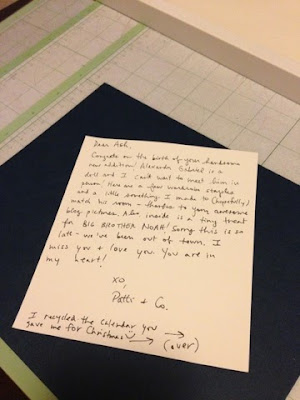 Dear Ash,
Congrats on the birth of your handsome
new addition! Alexander Gabriel is a
doll and I can't wait to meet him in
person! Here are a few wardrobe staples
and a little something I made to (hopefully)
match his room - thanks to your awesome
blog pictures. Also inside is a tiny treat
for BIG BROTHER NOAH! Sorry this is so
late - we've been out of town. I
miss you + love you. You are in
my heart!
xo,
Patti + Co.
I recycled the calendar you
gave me for Christmas
(over)